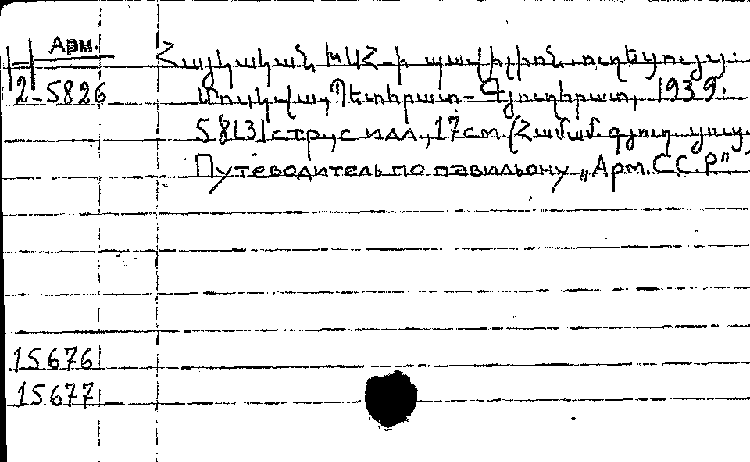 Арм.
Հայկական ԽՍՀ-ի պավիլիոն. ուղեցույց.
2-5826
Մոսկվա, Պետհրատ-Գյուղհրատ, 1939.
58[3] стр., с илл., 17 см. (Համամ. գյուղ. ցուց.
Путеводитель по павильону „Арм.ССР"
15676
15677